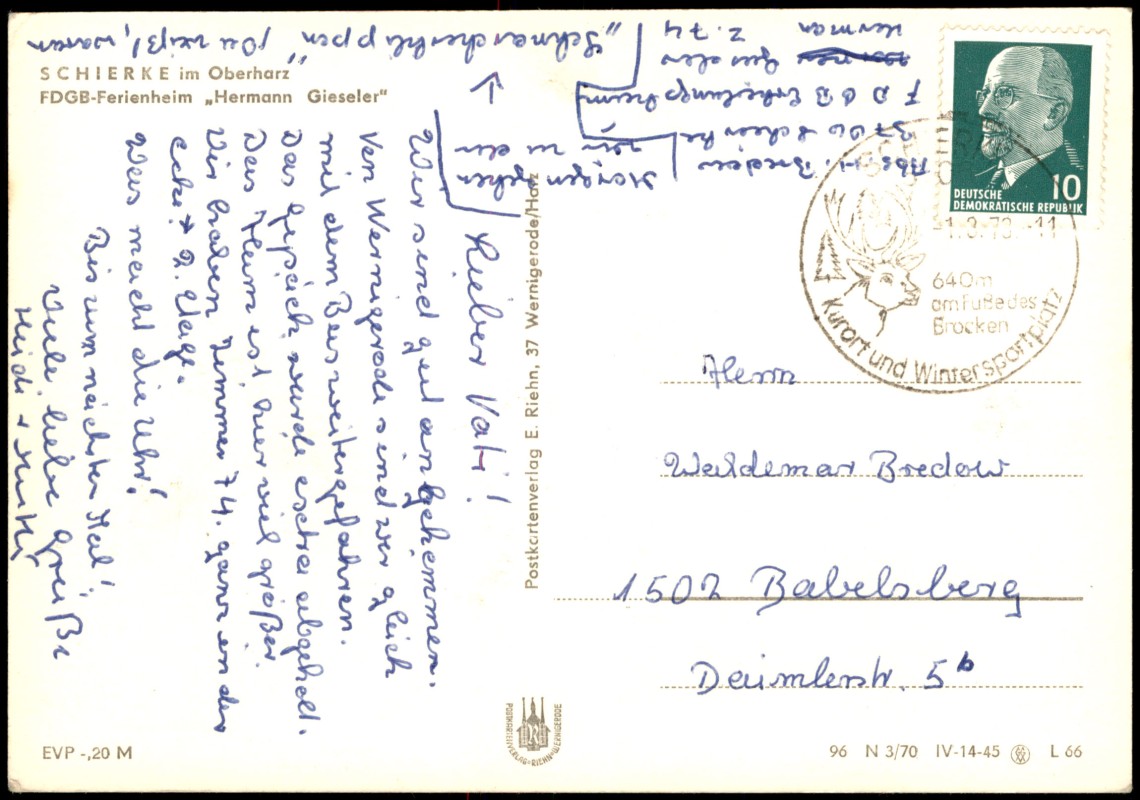 SCHIERKE im Oberharz
FDGB-Ferienheim „Hermann Gieseler“
Lieber Vati!
Wir sind gut angekommen.
Von Wernigerode sind wir gleich
mit dem Bus weitergefahren.
Das Gepäck wurde extra abgeholt.
Das Heim ist hier viel größer.
Wir haben Zimmer 74. ganz in der
Ecke. * 2. Etage.
Was macht die Uhr?
Bis zum nächsten Mal!
Viele liebe Grüße
Heidi + Mutti
Morgen gehen
wir zu den
„Schnarcherklippen“
(Du weißt, waren
Abs. H. Bredow
3706 Schierke
FDGB Erholungsheim
Herman
Z. 74
Postkartenverlag E. Riehn, 37 Wernigerode/Harz
DEUTSCHE
DEMOKRATISCHE REPUBLIK
10
640m
am Fuße des
Brocken
Kurort und Wintersportplatz
Herrn
Waldemar Bredow
1502 Babelsberg
Daimlerstr. 5b
POSTKARTENVERLAG · RIEHN · WERNIGERODE
EVP -,20 M
96 N 3/70 IV-14-45 L 66